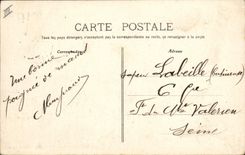 CARTE POSTALE
Tous les pays étrangers n'acceptent pas la correspondance au recto, se renseigner à la poste
Correspondance
Adresse
Une bonne
poignée de main
Sapeur Labeille
6 Cie
Ft du Mt Valérien
Seine